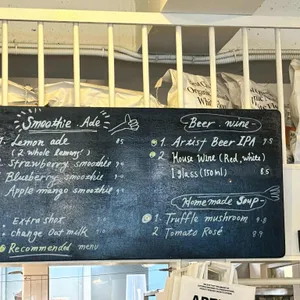 Smoothie . Ade
1. Lemon ade 8.5
(2 whole lemons)
Strawberry smoothie
Blueberry smoothie
Apple mango smoothie
Extra shot
change Oat milk
Recommended menu
Beer . wine
1. Artist Beer IPA 9.5
2 House Wine (Red, white)
1 glass (150ml) 8.5
Homemade Soup
1. Truffle mushroom 9.8
2 Tomato Rosé 9.9
Organic